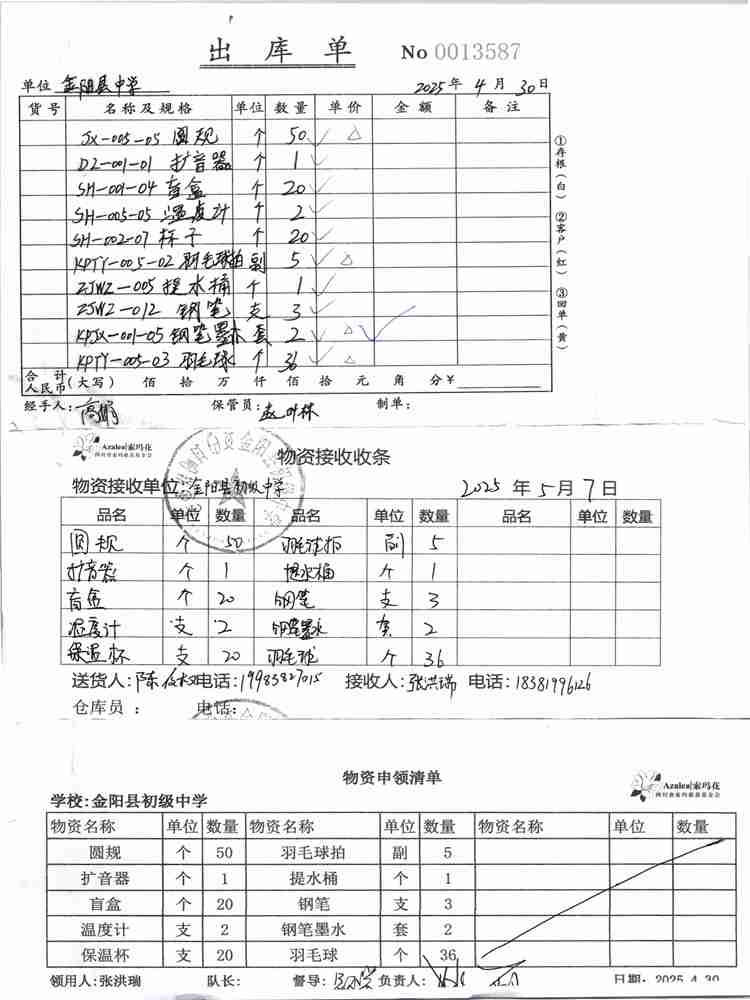 出库单 No 0013587
单位 金阳县中学 2025年 4月 30日
货号 名称及规格 单位 数量 单价 金额 备注
JX-005-05 圆规 个 50
DZ-001-01 扩音器 个 1
SH-001-04 盲盒 个 20
SH-005-05 温度计 个 2
SH-002-07 杯子 个 20
KPTY-005-02 羽毛球拍 副 5
ZJWZ-005 提水桶 个 1
ZJWZ-012 钢笔 支 3
KPJX-001-05 钢笔墨水 套 2
KPTY-005-03 羽毛球 个 36
合计人民币(大写) 佰 拾 万 仟 佰 拾 元 角 分 ¥
经手人: 保管员: 制单:
①存根(白) ②客户(红) ③回单(黄)
Azalea|索玛花
物资接收收条
物资接收单位:金阳县初级中学 2025年5月7日
品名 单位 数量 品名 单位 数量 品名 单位 数量
圆规 个 50 羽毛球拍 副 5
扩音器 个 1 提水桶 个 1
盲盒 个 20 钢笔 支 3
温度计 支 2 钢笔墨水 套 2
保温杯 支 20 羽毛球 个 36
送货人:陈 电话:19983827015 接收人:张洪瑞 电话:18381996126
仓库员: 电话:
物资申领清单
Azalea|索玛花
学校:金阳县初级中学
物资名称 单位 数量 物资名称 单位 数量 物资名称 单位 数量
圆规 个 50 羽毛球拍 副 5
扩音器 个 1 提水桶 个 1
盲盒 个 20 钢笔 支 3
温度计 支 2 钢笔墨水 套 2
保温杯 支 20 羽毛球 个 36
领用人:张洪瑞 队长: 督导: 负责人: 日期: 2025.4.30